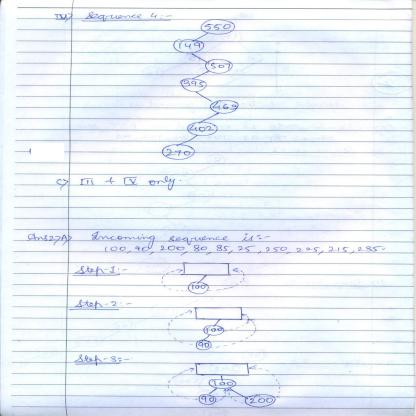 IV) Sequence 4:-
550
149
507
395
463
402
270
C) III & IV only.
Ans2) A) Incoming sequence is:-
100, 90, 200, 80, 85, 25, 250, 225, 215, 235.
Step-1:-
100
Step-2:-
100
90
Step-3:-
100
90 200